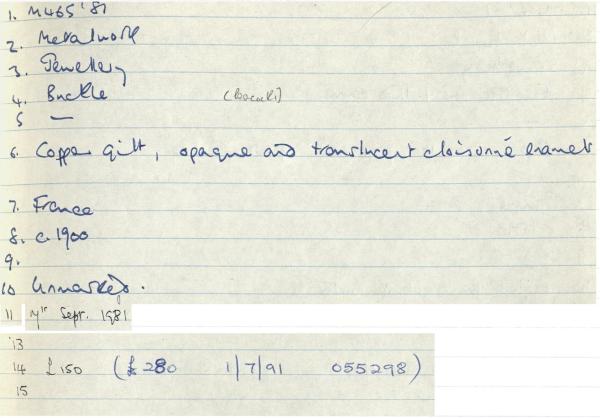 1. M465 '87
2. Metalwork
3. Jewellery
4. Buckle
5 —
6. Copper gilt, opaque and translucent cloisonné enamels
7. France
8. c. 1900
9.
10 Unmarked.
11 Sept. 1981
13
14 £150 (£280 1/7/91 055298)
15